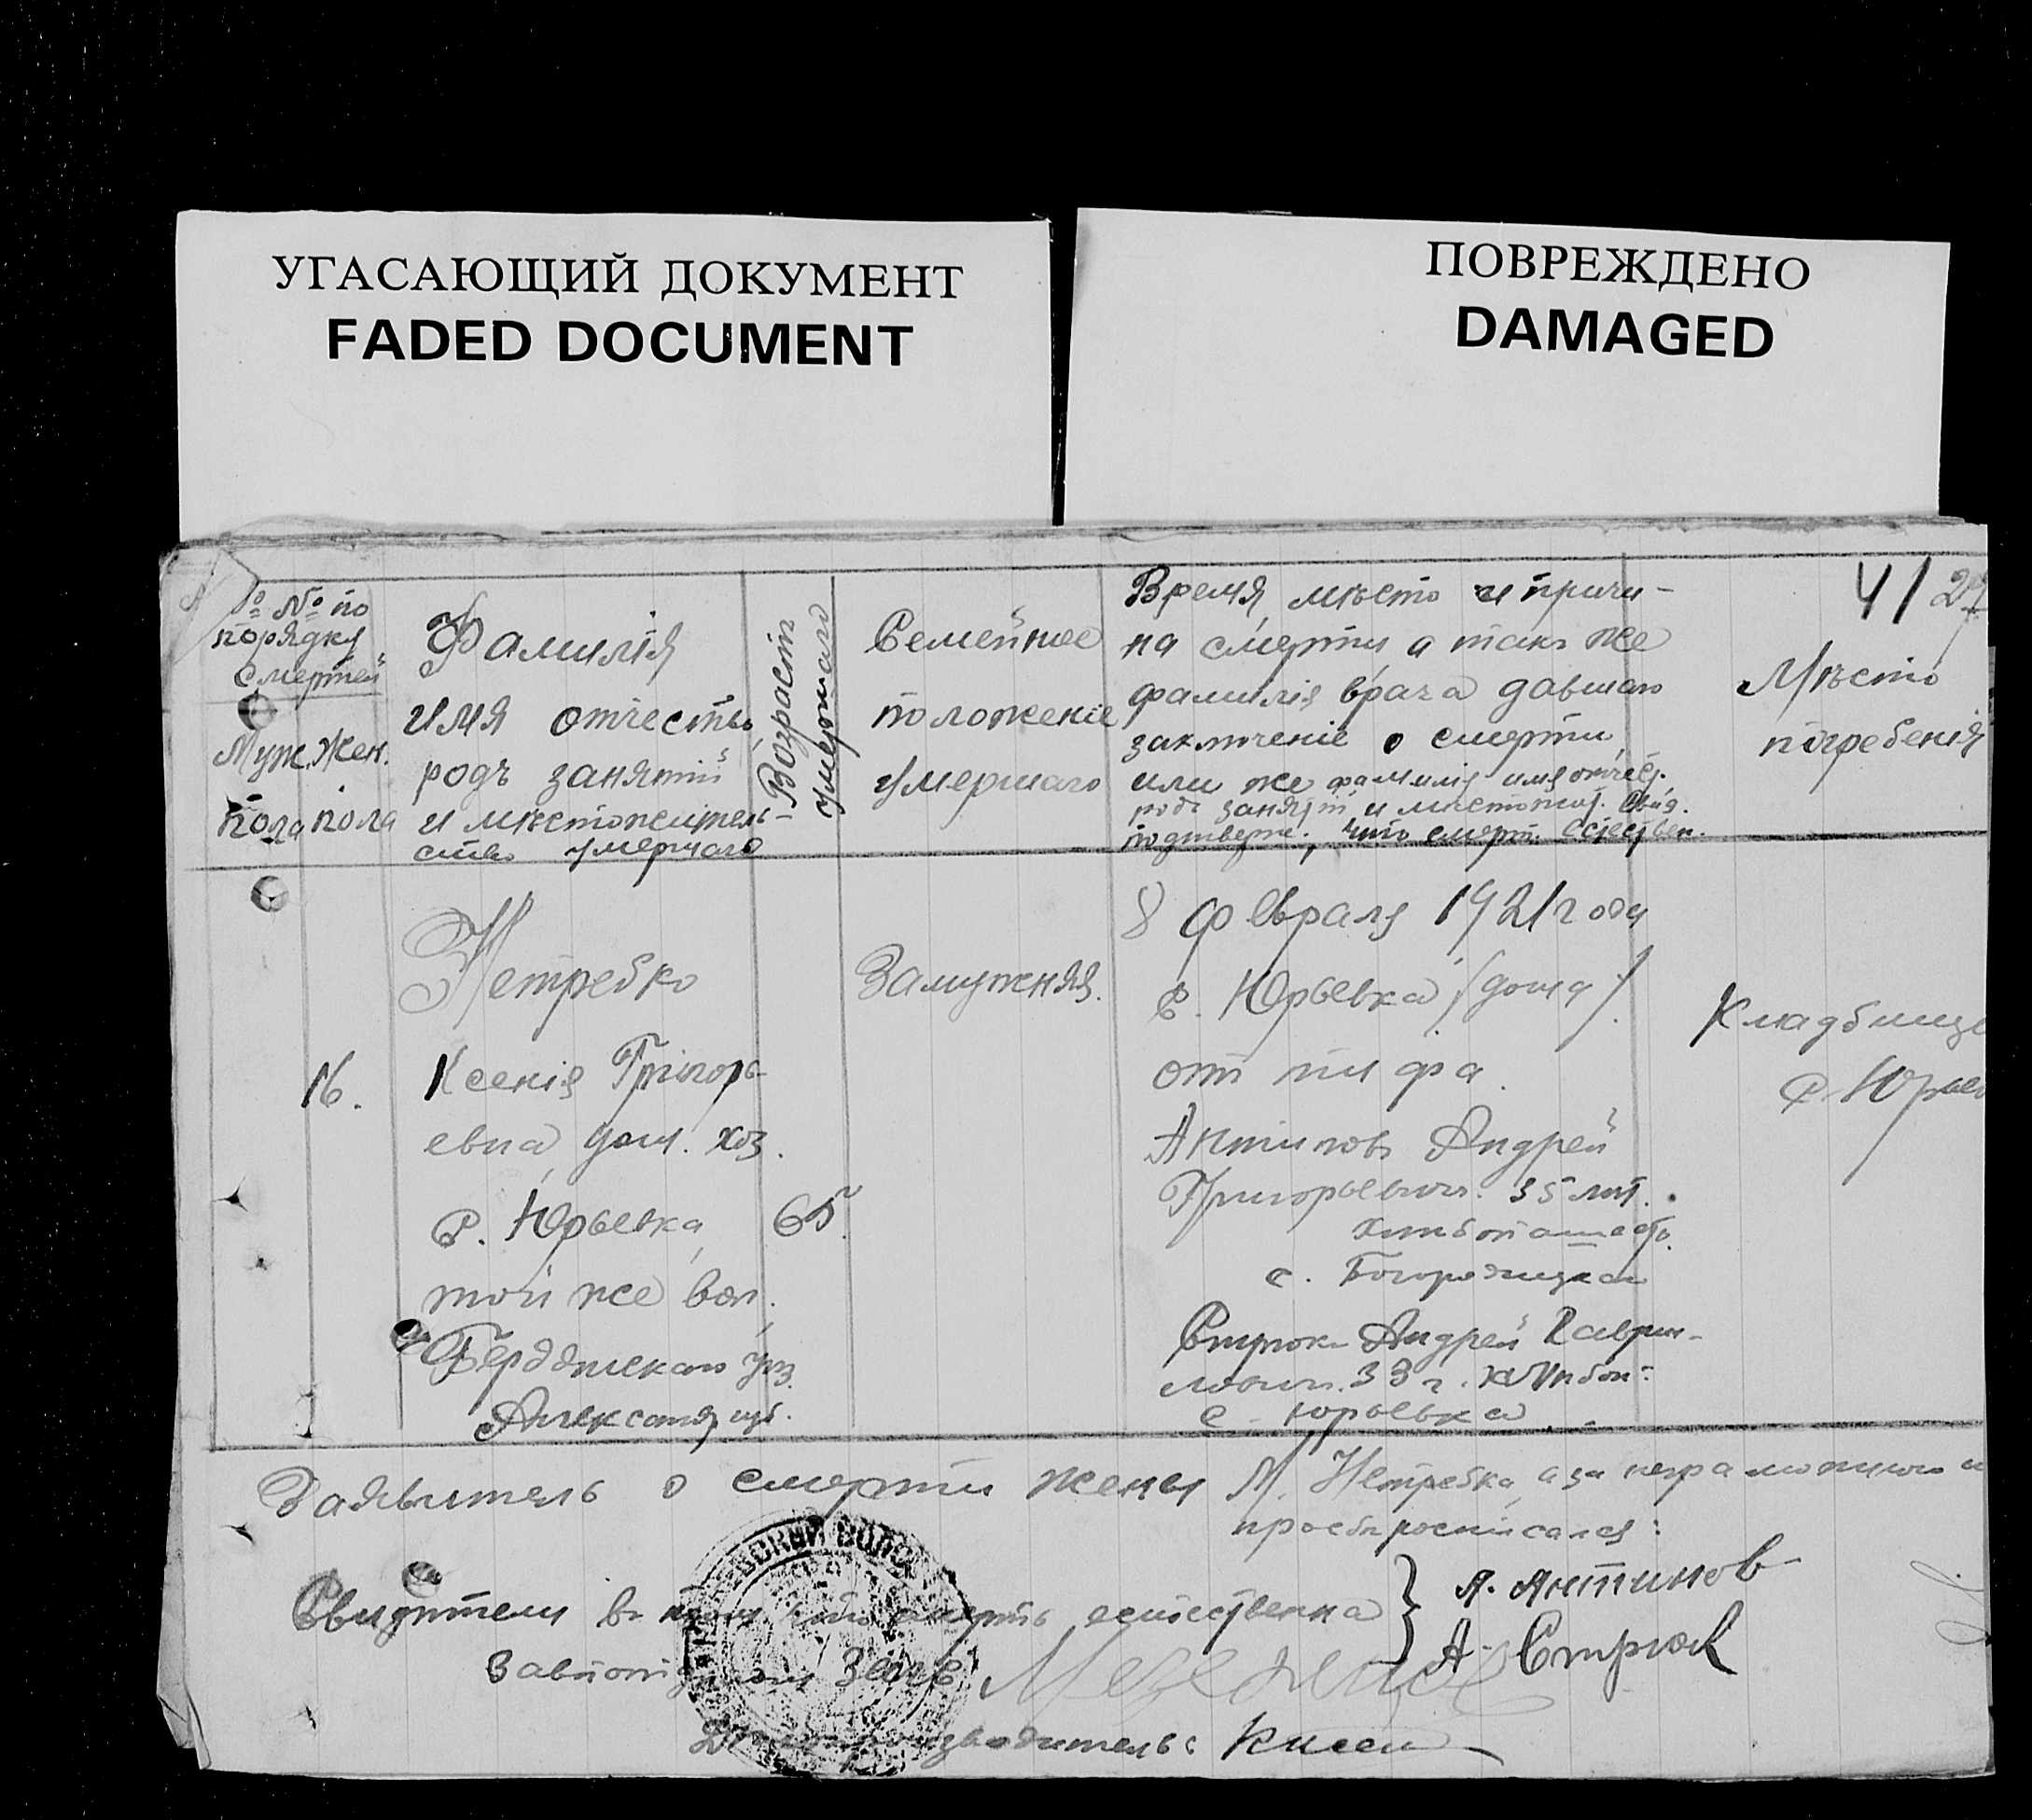 УГАСАЮЩИЙ ДОКУМЕНТ
FADED DOCUMENT
ПОВРЕЖДЕНО
DAMAGED
4/27
№ № по
порядку
смертей
Муж. Жен.
пола пола
Фамилія
имя отчество
родъ занятій
и мѣстожитель-
ство умершаго
Возрастъ
умершаго
Семейное
положеніе
умершаго
Время, мѣсто и причи-
на смерти а такъ же
фамилія врача давшаго
заключеніе о смерти,
или же фамилія имя отчес.
родъ занятій и мѣстожит. свид.
подтверж., что смерть естествен.
Мѣсто
погребенія
16.
Нетребко
Ксенія Григорь-
евна дом. хоз.
с. Юрьевка,
той же вол.
Бердянскаго уѣз.
Александр. губ.
65
Замужняя.
8 февраля 1921 году
с. Юрьевка /дома/.
от тифа.
Антиповъ Андрей
Григорьевич. 35 лѣт.
хлѣбопашество.
с. Богородицкая
Стрюкъ Андрей Гаври-
лович. 33 г. хлѣбоп.
с. Юрьевка
Кладбище
с. Юрьев
Заявитель о смерти жены М. Нетребка, а за неграмотного и
просьбы росписался:
Свидѣтели въ том что смерть естественна } А. Антипов
А. Стрюк
Завотдѣлом Загс
Дѣлопроизводитель: